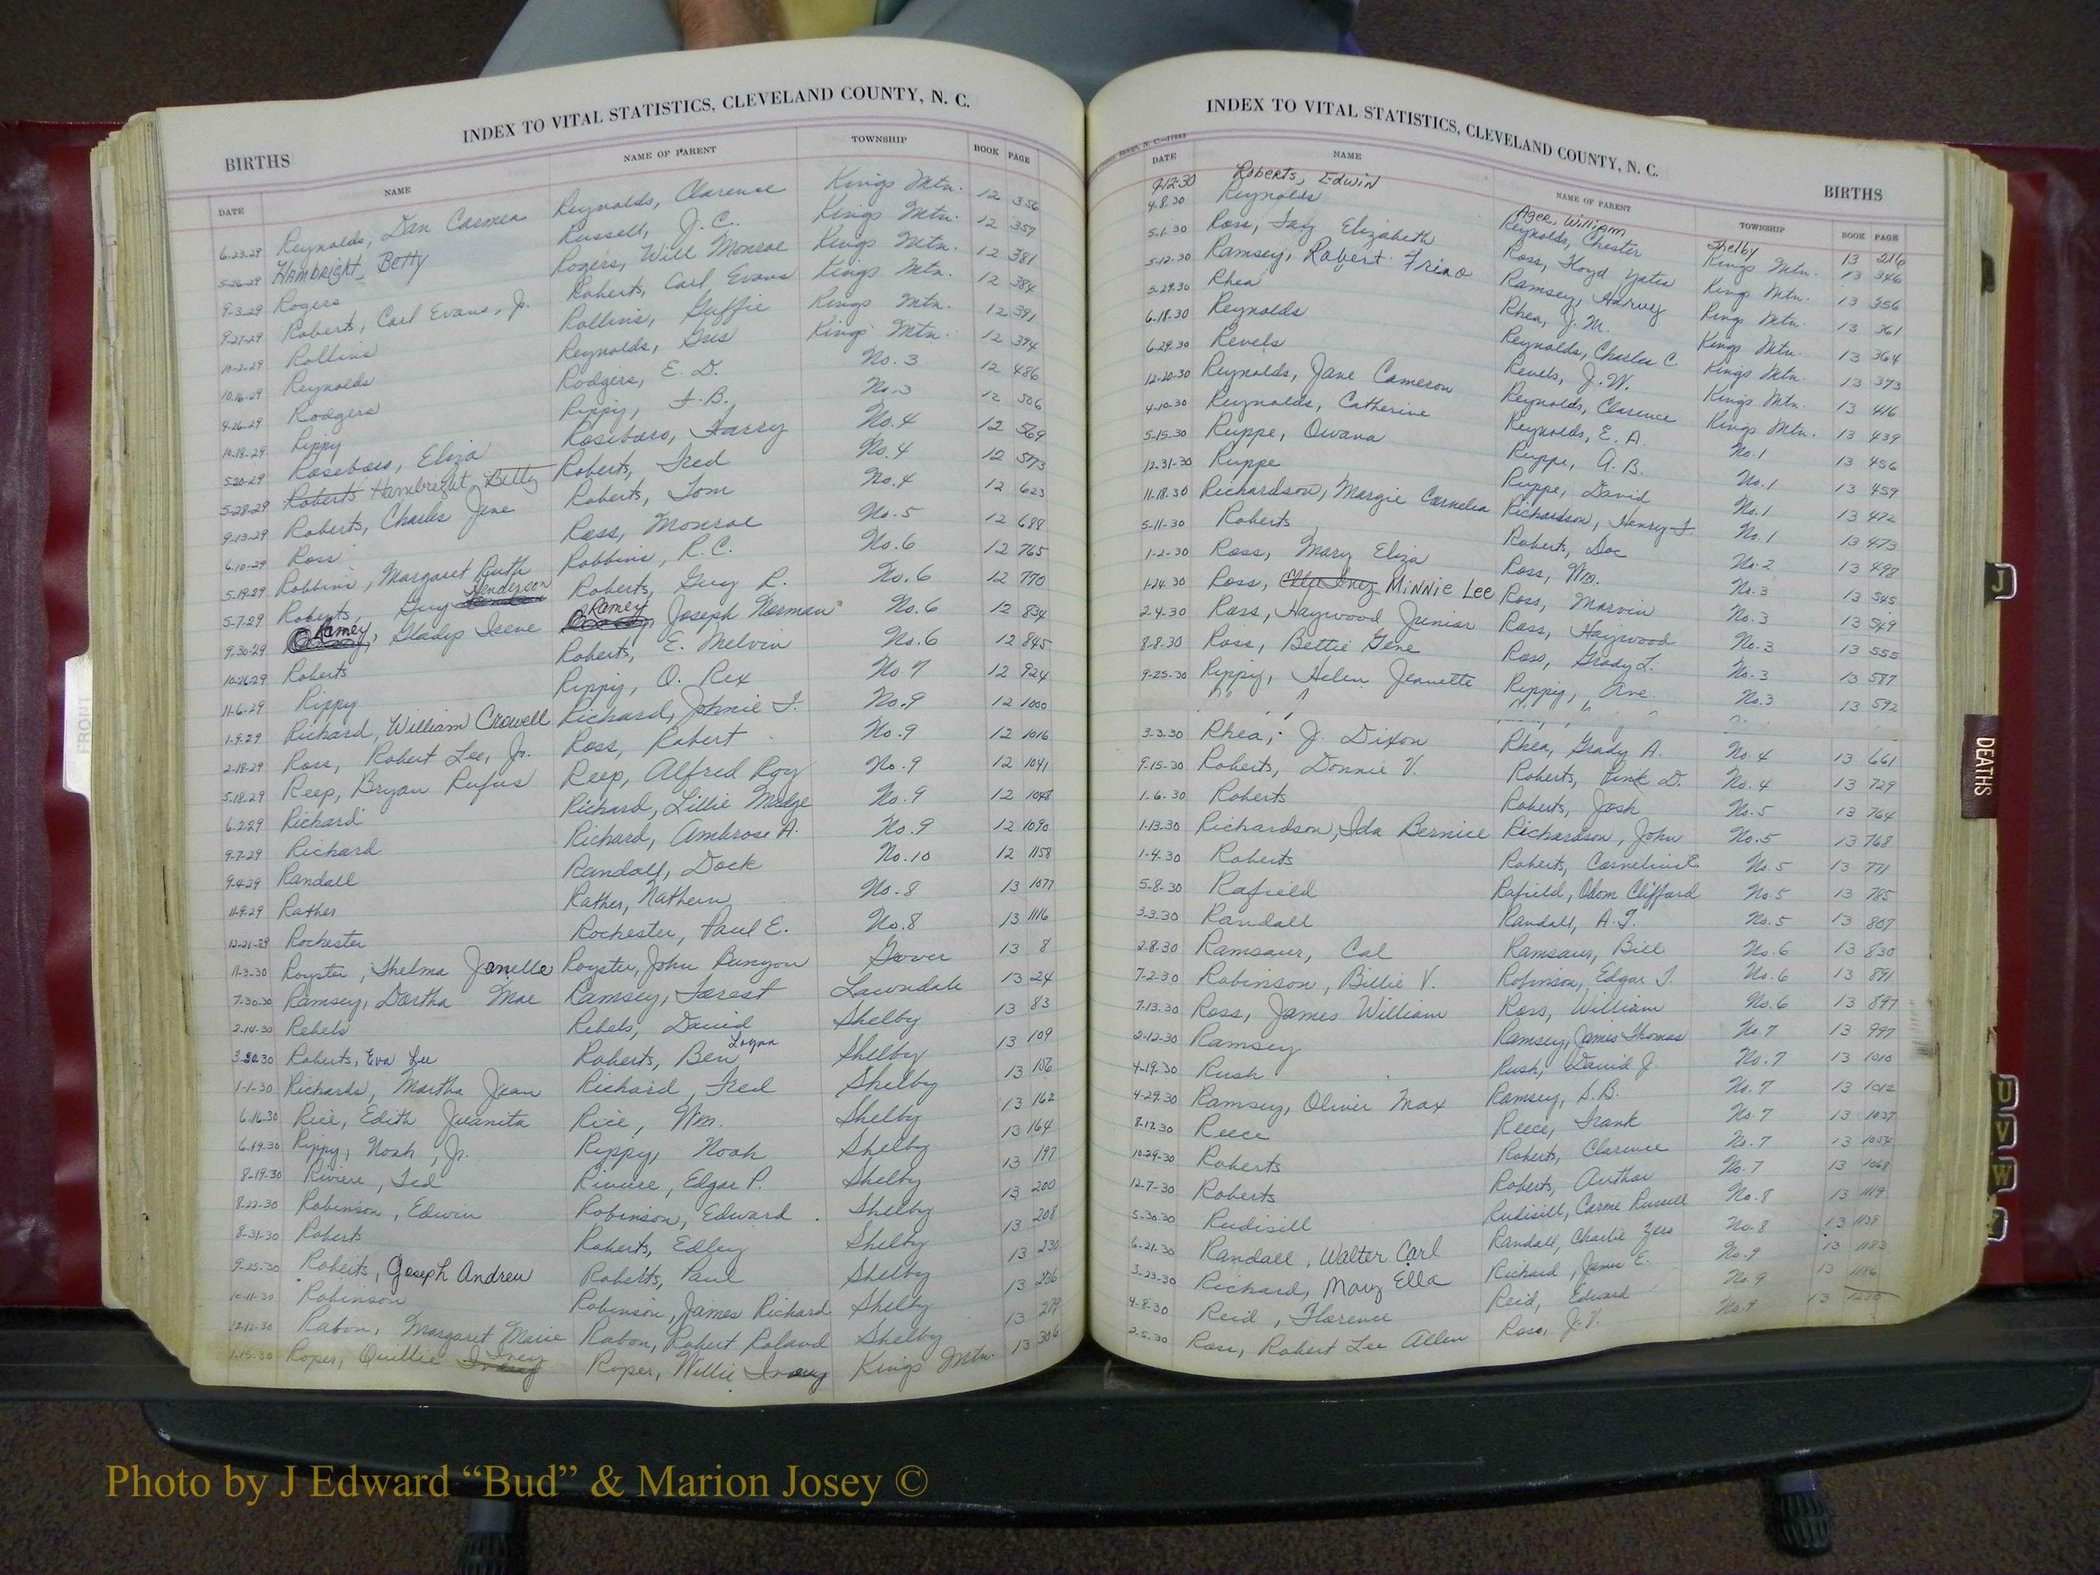 INDEX TO VITAL STATISTICS, CLEVELAND COUNTY, N. C.
BIRTHS
DATE NAME NAME OF PARENT TOWNSHIP BOOK PAGE
6-23-29 Reynolds, Dan Carmen Reynolds, Clarence Kings Mtn. 12 356
5-26-29 Hambright Betty Russell, J. C. Kings Mtn. 12 357
9-3-29 Rogers Rogers, Will Monroe Kings Mtn. 12 381
9-27-29 Roberts, Carl Evans, Jr. Roberts, Carl Evans Kings Mtn. 12 384
10-2-29 Rollins Rollins, Guffie Kings Mtn. 12 391
10-16-29 Reynolds Reynolds, Gus Kings Mtn. 12 394
4-26-29 Rodgers Rodgers, E. D. No. 3 12 486
10-18-29 Rippy Rippy, F. B. No. 3 12 506
5-20-29 Roseboro, Eliza Roseboro, Harry No. 4 12 569
5-28-29 Roberts Hambright, Betty Roberts, Fred No. 4 12 573
9-13-29 Roberts, Charles Jane Roberts, Tom No. 4 12 623
6-10-29 Ross Ross, Monroe No. 5 12 688
5-19-29 Robbins, Margaret Ruth Robbins, R. C. No. 6 12 765
5-7-29 Roberts, Guy Henderson Roberts, Guy R. No. 6 12 770
9-30-29 Ramey, Gladys Irene Ramey, Joseph Norman No. 6 12 834
10-26-29 Roberts Roberts, E. Melvin No. 6 12 845
11-6-29 Rippy Rippy, O. Rex No. 7 12 924
1-9-29 Richard, William Crowell Richard, Johnie F. No. 9 12 1000
2-18-29 Ross, Robert Lee, Jr. Ross, Robert No. 9 12 1016
5-18-29 Reep, Bryan Rufus Reep, Alfred Roy No. 9 12 1041
6-2-29 Richard Richard, Lillie Madge No. 9 12 1048
9-7-29 Richard Richard, Ambrose A. No. 9 12 1090
9-4-29 Randall Randall, Dock No. 10 12 1158
11-9-29 Rather Rather, Nathern No. 8 13 1077
12-21-29 Rochester Rochester, Paul E. No. 8 13 1116
11-3-30 Royster, Thelma Janelle Royster, John Bunyon Grover 13 8
7-30-30 Ramsey, Dortha Mae Ramsey, Forest Lawndale 13 24
2-14-30 Rebels Rebels, David Shelby 13 83
3-30-30 Roberts, Eva Lee Roberts, Ben Logan Shelby 13 109
1-1-30 Richards, Martha Jean Richard, Fred Shelby 13 156
6-16-30 Rice, Edith Juanita Rice, Wm. Shelby 13 162
6-19-30 Rippy, Noah, Jr. Rippy, Noah Shelby 13 164
8-19-30 Riviere, Ted Riviere, Edgar P. Shelby 13 197
8-22-30 Robinson, Edwin Robinson, Edward Shelby 13 200
8-31-30 Roberts Roberts, Edley Shelby 13 208
9-25-30 Roberts, Joseph Andrew Roberts, Paul Shelby 13 230
10-11-30 Robinson Robinson, James Richard Shelby 13 236
12-12-30 Rabon, Margaret Marie Rabon, Robert Roland Shelby 13 279
1-15-30 Roper, Quillie Ivey Roper, Willie Kings Mtn. 13 306
INDEX TO VITAL STATISTICS, CLEVELAND COUNTY, N. C.
BIRTHS
DATE NAME NAME OF PARENT TOWNSHIP BOOK PAGE
9-12-30 Roberts, Edwin Ager, William Shelby 13 216
4-8-30 Reynolds Reynolds, Chester Kings Mtn. 13 346
5-1-30 Ross, Fay Elizabeth Ross, Floyd Yates Kings Mtn. 13 356
5-12-30 Ramsey, Robert Ramsey, Harvey Kings Mtn. 13 361
5-29-30 Rhea Rhea, J. M. Kings Mtn. 13 364
6-18-30 Reynolds Reynolds, Charles C. Kings Mtn. 13 373
6-29-30 Revels Revels, J. W. Kings Mtn. 13 416
12-20-30 Reynolds, Jane Cameron Reynolds, Clarence Kings Mtn. 13 439
4-10-30 Reynolds, Catherine Reynolds, E. A. No. 1 13 456
5-15-30 Ruppe, Owana Ruppe, A. B. No. 1 13 459
12-31-30 Ruppe Ruppe, David No. 1 13 472
11-18-30 Richardson, Margie Cornelia Richardson, Henry F. No. 1 13 473
5-11-30 Roberts Roberts, Doc No. 2 13 498
1-2-30 Ross, Mary Eliza Ross, Wm. No. 3 13 545
1-24-30 Ross, Minnie Lee Ross, Marvin No. 3 13 549
2-4-30 Ross, Haywood Junior Ross, Haywood No. 3 13 555
8-8-30 Ross, Bettie Gene Ross, Grady L. No. 3 13 587
9-25-30 Rippy, Helen Jeanette Rippy, Ave No. 3 13 592
3-3-30 Rhea, J. Dixon Rhea, Grady A. No. 4 13 661
9-15-30 Roberts, Donnie V. Roberts, Pink D. No. 4 13 729
1-6-30 Roberts Roberts, Josh No. 5 13 764
1-13-30 Richardson, Ida Bernice Richardson, John No. 5 13 768
1-4-30 Roberts Roberts, Cornelius E. No. 5 13 771
5-8-30 Rafield Rafield, Odom Clifford No. 5 13 785
3-3-30 Randall Randall, A. F. No. 5 13 807
2-8-30 Ramsaur, Cal Ramsaur, Bill No. 6 13 830
7-2-30 Robinson, Billie V. Robinson, Edgar T. No. 6 13 891
7-13-30 Ross, James William Ross, William No. 6 13 897
2-12-30 Ramsey Ramsey, James Thomas No. 7 13 997
4-19-30 Rush Rush, David J. No. 7 13 1010
4-29-30 Ramsey, Oliver Max Ramsey, S. B. No. 7 13 1012
8-12-30 Reece Reece, Frank No. 7 13 1037
10-29-30 Roberts Roberts, Clarence No. 7 13 1054
12-7-30 Roberts Roberts, Arthur No. 7 13 1068
5-30-30 Rudisill Rudisill, Carme Russell No. 8 13 1119
6-21-30 Randall, Walter Carl Randall, Charlie Zero No. 8 13 1138
3-23-30 Richard, Mary Ella Richard, James E. No. 9 13 1183
4-8-30 Reid, Florence Reid, Edward No. 9 13 1186
2-5-30 Ross, Robert Lee Allen Ross, J. V. No. 9 13
FRONT
J
DEATHS
U
V
W
Photo by J Edward “Bud” & Marion Josey ©